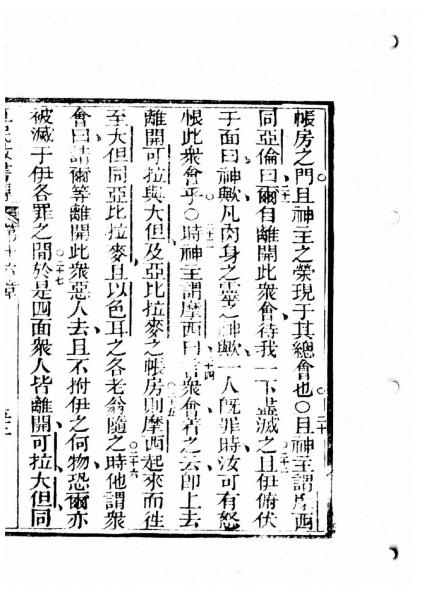 帳房之門且神主之榮現于其總會也〇二十且神主謂摩西
同亞倫曰二一爾自離開此衆會待我一下盡滅之二二且伊俯伏
于面曰神歟凡肉身之靈之神歟一人旣罪時汝可有怒
恨此衆會乎〇二三時神主謂摩西曰二四言衆會着之云卽上去
離開可拉與大但及亞比拉麥之帳房二五則摩西起來而徃
至大但同亞比拉麥且以色耳之各老翁隨之二六時他謂衆
會曰請爾等離開此衆惡人去且不拊伊之何物恐爾亦
被滅于伊各罪之間二七於是四面衆人皆離開可拉大但同
民數書傳 第十六章